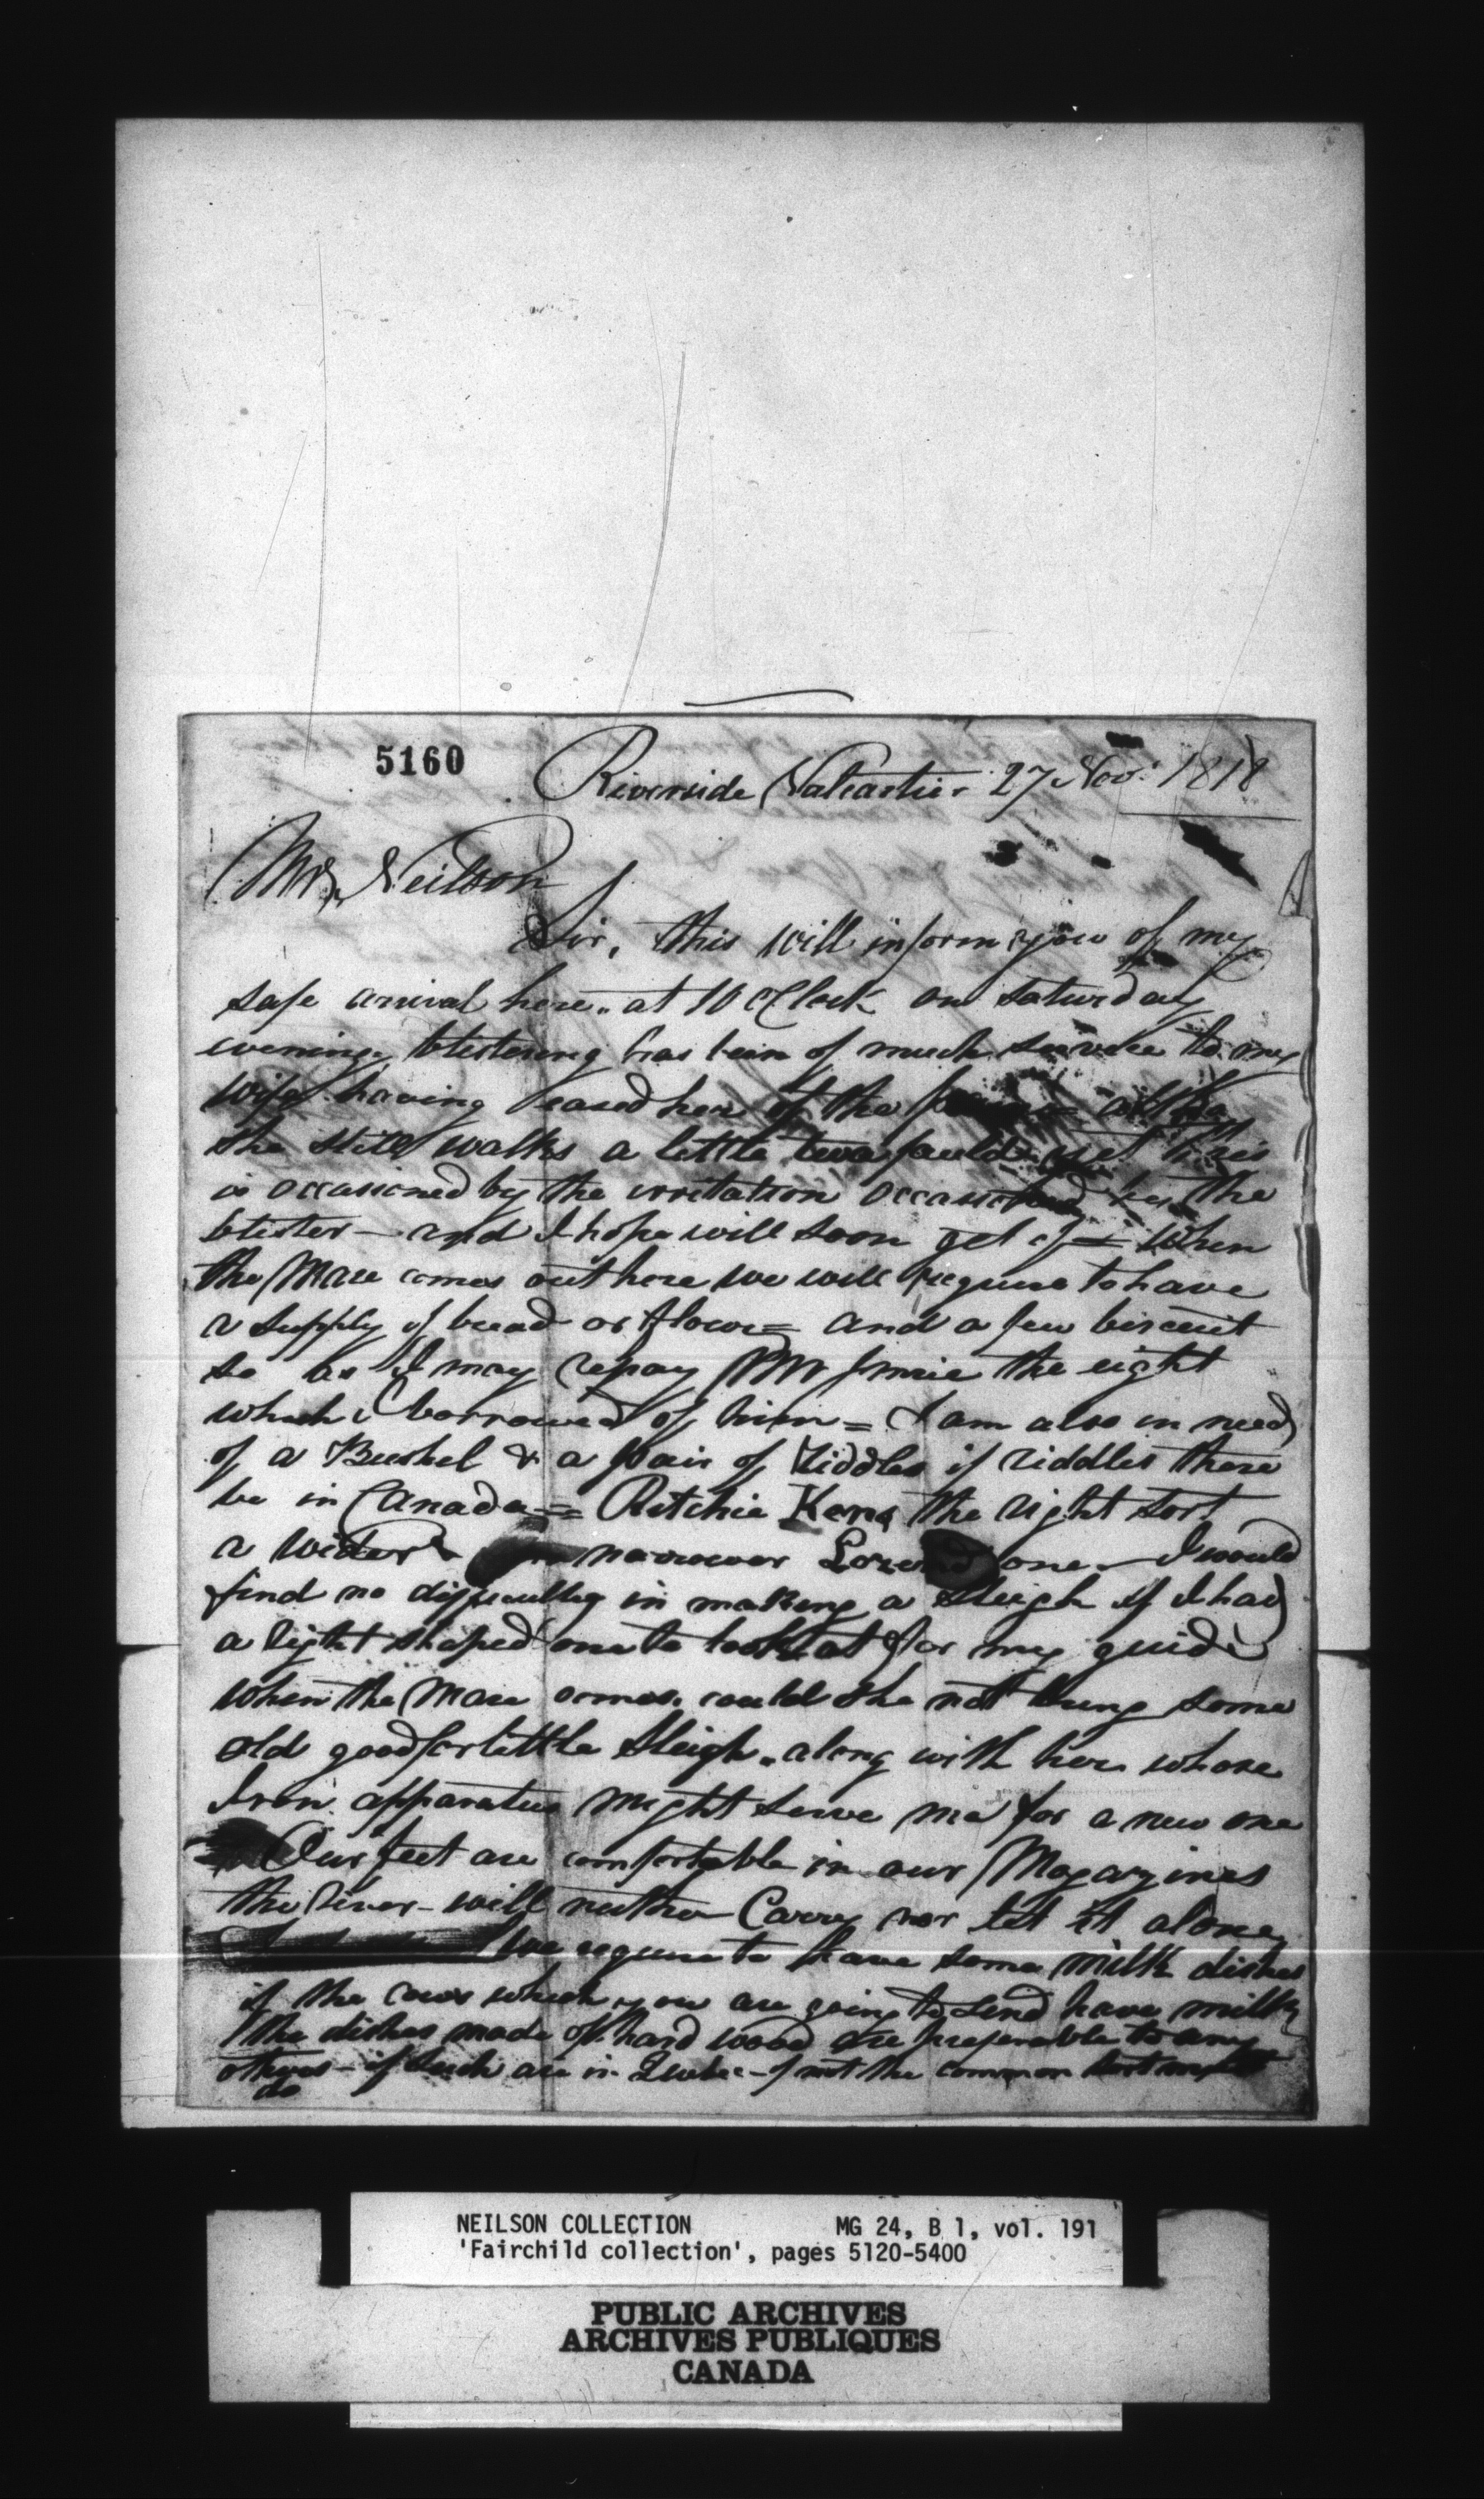 5160
Riverside Valcartier 27 Nov: 1818
Mr Neilson
Sir, this will inform you of my
safe arrival here at 10 oClock on Saturday
evening, blistering has been of much service to my
wife having eased her of the altho
she still walks a little twa fauld yet this
is occasioned by the irritation occasioned by the
blister — and I hope will soon get off = when
the Mare comes out here we will require to have
a supply of bread or flour = and a few biscuit
so as I may repay Mr the eight
which I borrowed of him = I am also in need
of a Bushel & a pair of Riddles if riddles there
be in Canada == Ritchie Kens the right sort
a wider & narrower one — I would
find no difficulty in making a Sleigh if I had
a right shaped one to look at for my guide
when the Mare comes could she not bring some
old good for little Sleigh along with her whose
Iron apparatus might serve me for a new one
Our feet are comfortable in our Magazines
the River will neither Carry nor let it alone
We require to have some milk dishes
if the cows which you are going to send have milk
the dishes made of hard wood are preferable to any
others — if such are in Quebec — if not the common sort must
do
NEILSON COLLECTION MG 24, B 1, vol. 191
'Fairchild collection', pages 5120-5400
PUBLIC ARCHIVES
ARCHIVES PUBLIQUES
CANADA